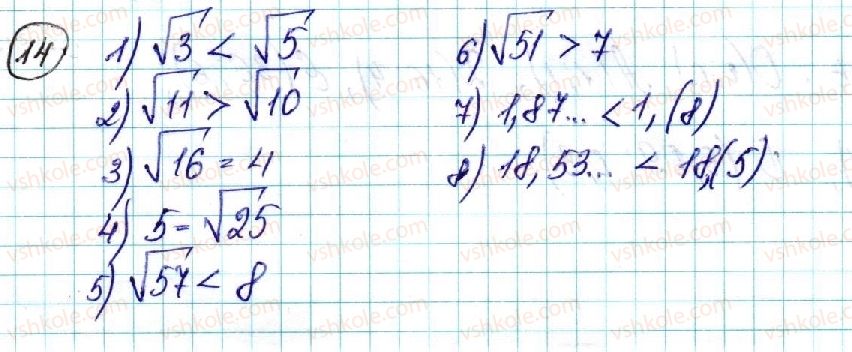 14
1) √3 < √5
2) √11 > √10
3) √16 = 4
4) 5 = √25
5) √57 < 8
6) √51 > 7
7) 1,87... < 1,(8)
8) 18,53... < 18,(5)
vshkole.com